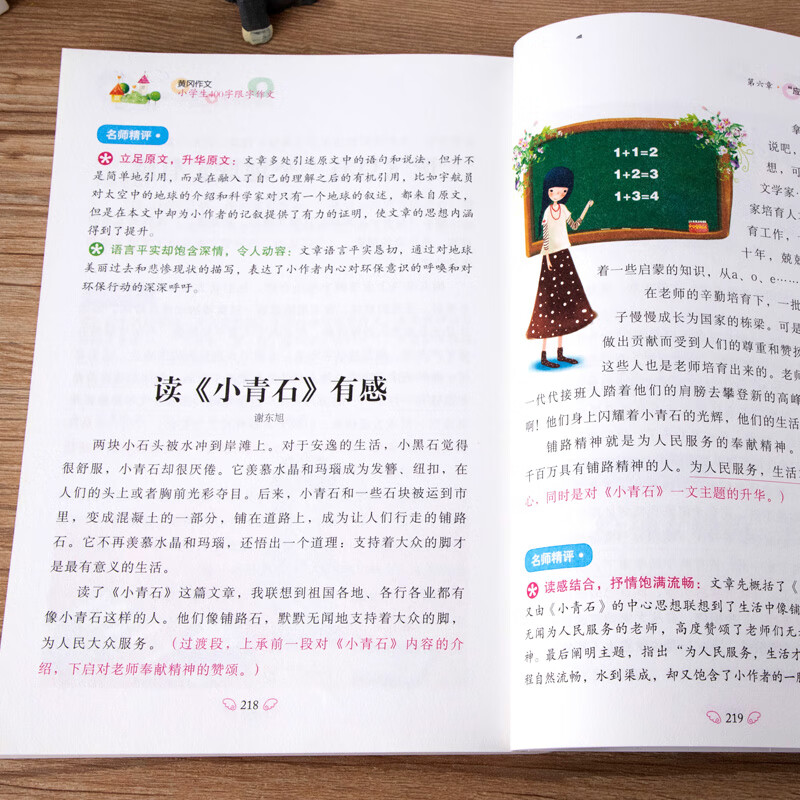 黄冈作文
小学生400字限字作文
名师精评
立足原文，升华原文：文章多处引述原文中的语句和说法，但并不
是简单地引用，而是在融入了自己的理解之后的有机引用，比如宇航员
对太空中的地球的介绍和科学家对只有一个地球的叙述，都来自原文，
但是在本文中却为小作者的记叙提供了有力的证明，使文章的思想内涵
得到了提升。
语言平实却饱含深情，令人动容：文章语言平实恳切，通过对地球
美丽过去和悲惨现状的描写，表达了小作者内心对环保意识的呼唤和对
环保行动的深深呼吁。
读《小青石》有感
谢东旭
两块小石头被水冲到岸滩上。对于安逸的生活，小黑石觉得
很舒服，小青石却很厌倦。它羡慕水晶和玛瑙成为发簪、纽扣，在
人们的头上或者胸前光彩夺目。后来，小青石和一些石块被运到市
里，变成混凝土的一部分，铺在道路上，成为让人们行走的铺路
石。它不再羡慕水晶和玛瑙，还悟出一个道理：支持着大众的脚才
是最有意义的生活。
读了《小青石》这篇文章，我联想到祖国各地、各行各业都有
像小青石这样的人。他们像铺路石，默默无闻地支持着大众的脚，
为人民大众服务。（过渡段，上承前一段对《小青石》内容的介
绍，下启对老师奉献精神的赞颂。）
218
第六章·“应
1+1=2
1+2=3
1+3=4
拿
说吧，
想，可
文学家
家培育人
育工作，
十年，兢兢
着一些启蒙的知识，从a、o、e……
在老师的辛勤培育下，一批
子慢慢成长为国家的栋梁。可是
做出贡献而受到人们的尊重和赞扬
这些人也是老师培育出来的。老师
一代代接班人踏着他们的肩膀去攀登新的高峰
啊！他们身上闪耀着小青石的光辉，他们的生活
铺路精神就是为人民服务的奉献精神。
千百万具有铺路精神的人。为人民服务，生活
心，同时是对《小青石》一文主题的升华。）
名师精评
读感结合，抒情饱满流畅：文章先概括了《
又由《小青石》的中心思想联想到了生活中像铺
无闻为人民服务的老师，高度赞颂了老师们无
神。最后阐明主题，指出“为人民服务，生活才
程自然流畅，水到渠成，却又饱含了小作者的一
219